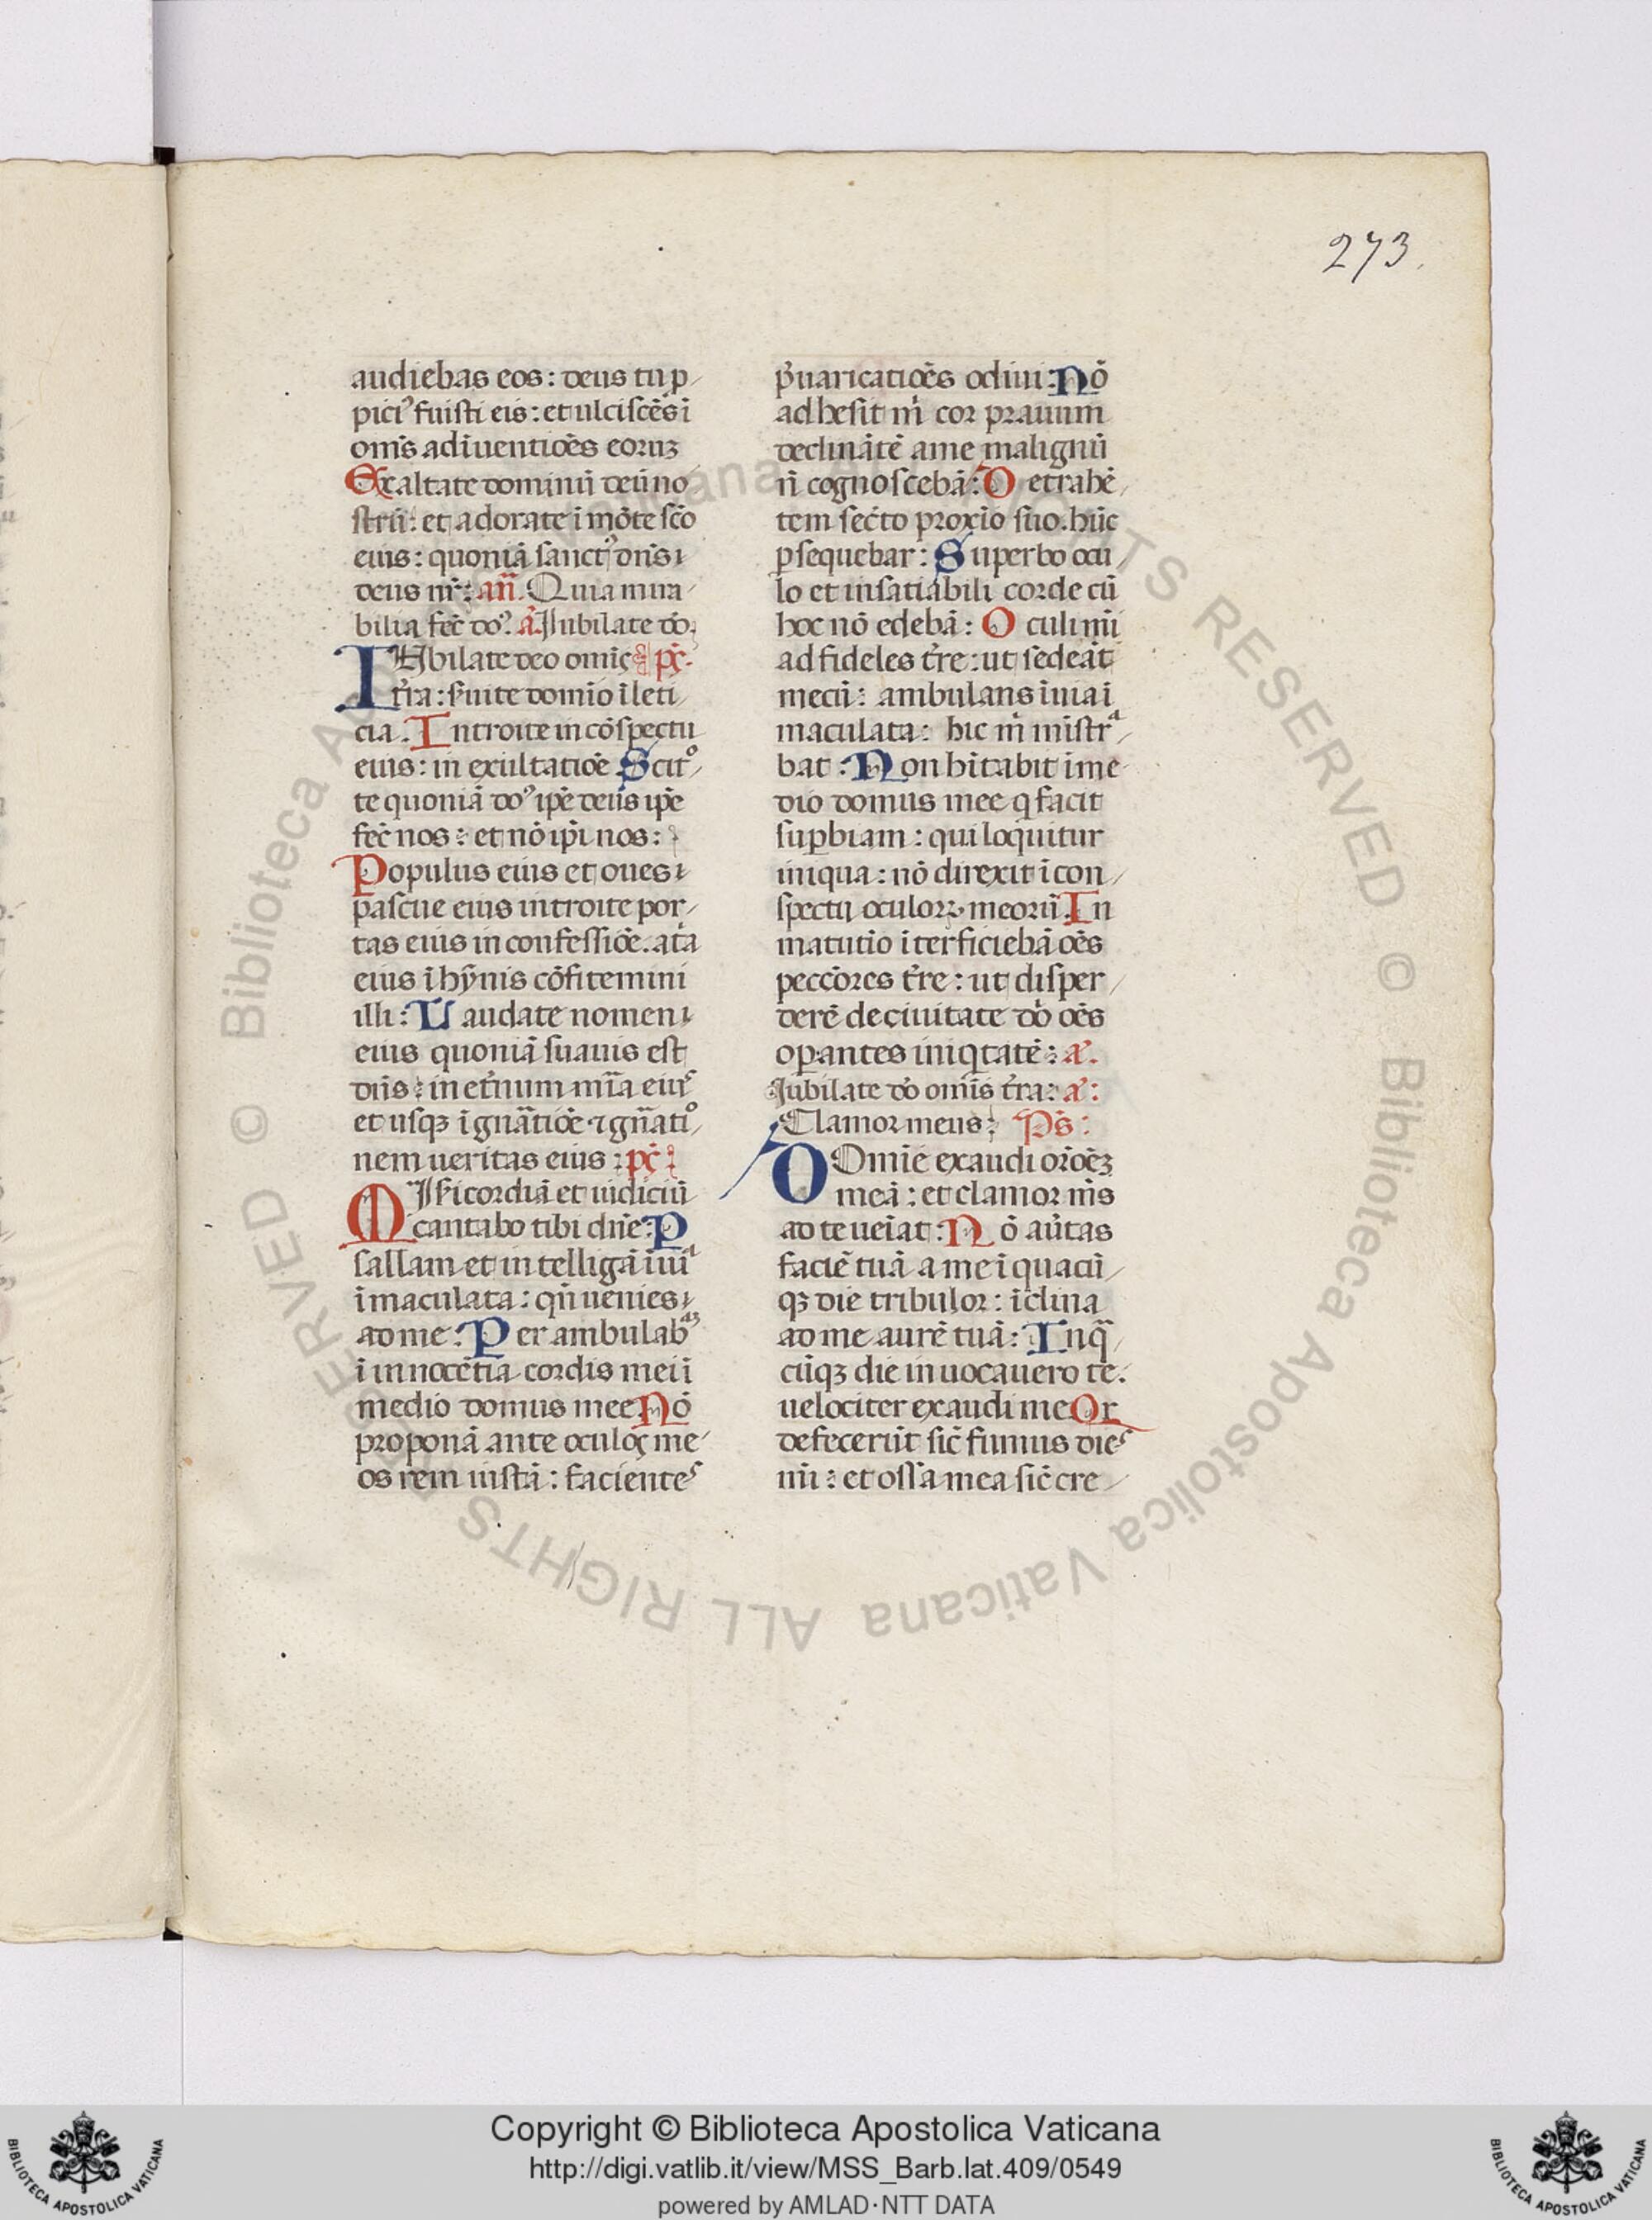 273.
audiebas eos: deus tu p
pici⁹ fuisti eis: et ulciscēs ī
omīs adīuentiōēs eoruꝫ
Exaltate dominū deū no
strū: et adorate ī mōte scō
eius: quoniā sanct⁹ dn̄s
deus nr̄: an̄. Quia mira
bilia fec̄ do⁹. a. Iubilate dō.
IUbilate deo omīs pṡ.
tr̄a: s̄uite domīo ī leti
cia. Introite in cōspectu
eius: in exultatiōe Scitº
te quoniā do⁹ ip̄e deus ip̄e
fec̄ nos: et nō ip̄i nos:
Populus eius et oues
pascue eius introite por
tas eius in confessiōe. atr̄a
eius ī hȳnis cōfitemini
illi: Laudate nomen
eius quoniā suauis est
dn̄s: in et̄num mīa eiuˢ
et usqꝫ ī gn̄atiōe ⁊ gn̄atiº
nem ueritas eius: pṡ:
MIs̄icordiā et iudiciū
cantabo tibi dn̄e: P
sallam et intelligā ī uiᵃ
īmaculata: qn̄ uenies
ad me: Perambulabᵃ
ī innocētia cordis mei ī
medio domus mee Nō
proponā ante oculos me
os rem iustā: facienteˢ
p̄uaricatiōēs odiui: Nō
adhesit m̄ cor prauum
declināte a me malignū
n̄ cognoscebā: Detrahē
tem sec̄to proxīo suo. hūc
ꝑsequebar: Superbo ocu
lo et insatiabili corde cū
hoc nō edebā: Oculi mī
ad fideles tr̄e: ut sedeāt
mecū: ambulans ī uia ī
maculata: hic m̄ mīstrᵃ
bat: Non hītabit ī me
dio domus mee q facit
suꝑbiam: qui loquitur
iniqua: nō direxit ī con
spectu oculoꝝ meorū In
matutīo īterficiebā oēs
peccōres tr̄e: ut disper
derē de ciuitate dō oēs
oꝑantes iniqtatē: a.
Iubilate dō omīs tr̄a: a:
Clamor meus: Ps:
DOmīe exaudi orōēꝫ
meā: et clamor mſ
ad te ueīat: Nō au̇tas
faciē tuā a me ī quacū
qꝫ die tribulor: īclina
ad me aurē tuā: In qᵃ
cūqꝫ die inuocauero te:
uelociter exaudi me Qr
defecerūt sic̄ fumus dieˢ
mī: et ossa mea sic̄ cre
© Biblioteca Apostolica Vaticana ALL RIGHTS RESERVED © Biblioteca Apostolica Vaticana ALL RIGHTS RESERVED
Copyright © Biblioteca Apostolica Vaticana
http://digi.vatlib.it/view/MSS_Barb.lat.409/0549
powered by AMLAD·NTT DATA
BIBLIOTECA APOSTOLICA VATICANA
BIBLIOTECA APOSTOLICA VATICANA